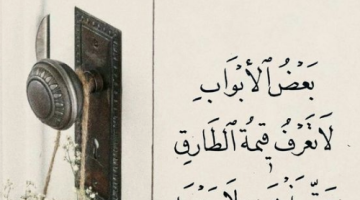 بَعْضُ ٱلأَبْوَابِ
لَا تَعْرِفُ قِيمَةَ ٱلطَّارِقِ